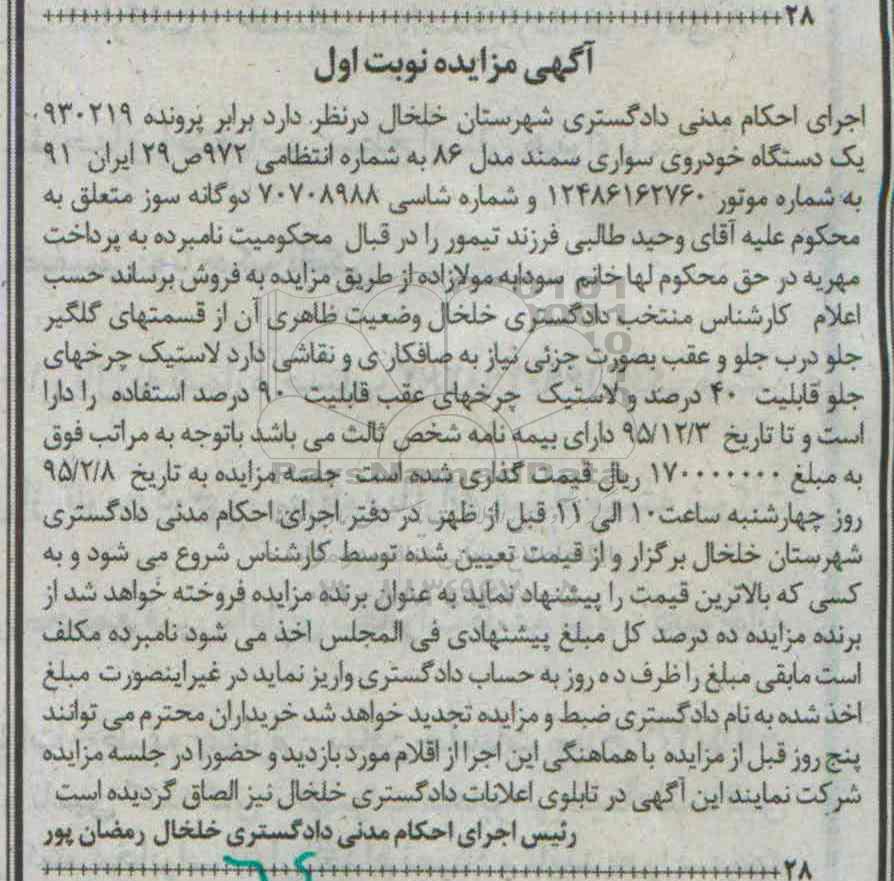 ۲۸
آگهی مزایده نوبت اول
اجرای احکام مدنی دادگستری شهرستان خلخال درنظر دارد برابر پرونده ۹۳۰۲۱۹
یک دستگاه خودروی سواری سمند مدل ۸۶ به شماره انتظامی ۹۷۲ص۲۹ ایران ۹۱
به شماره موتور ۱۲۴۸۶۱۶۲۷۶۰ و شماره شاسی ۷۰۷۰۸۹۸۸ دوگانه سوز متعلق به
محکوم علیه آقای وحید طالبی فرزند تیمور را در قبال محکومیت نامبرده به پرداخت
مهریه در حق محکوم لها خانم سودابه مولازاده از طریق مزایده به فروش برساند حسب
اعلام کارشناس منتخب دادگستری خلخال وضعیت ظاهری آن از قسمتهای گلگیر
جلو درب جلو و عقب بصورت جزئی نیاز به صافکاری و نقاشی دارد لاستیک چرخهای
جلو قابلیت ۴۰ درصد و لاستیک چرخهای عقب قابلیت ۹۰ درصد استفاده را دارا
است و تا تاریخ ۹۵/۱۲/۳ دارای بیمه نامه شخص ثالث می باشد باتوجه به مراتب فوق
به مبلغ ۱۷۰۰۰۰۰۰۰ ریال قیمت گذاری شده است جلسه مزایده به تاریخ ۹۵/۲/۸
روز چهارشنبه ساعت۱۰ الی ۱۱ قبل از ظهر در دفتر اجرای احکام مدنی دادگستری
شهرستان خلخال برگزار و از قیمت تعیین شده توسط کارشناس شروع می شود و به
کسی که بالاترین قیمت را پیشنهاد نماید به عنوان برنده مزایده فروخته خواهد شد از
برنده مزایده ده درصد کل مبلغ پیشنهادی فی المجلس اخذ می شود نامبرده مکلف
است مابقی مبلغ را ظرف ده روز به حساب دادگستری واریز نماید در غیراینصورت مبلغ
اخذ شده به نام دادگستری ضبط و مزایده تجدید خواهد شد خریداران محترم می توانند
پنج روز قبل از مزایده با هماهنگی این اجرا از اقلام مورد بازدید و حضورا در جلسه مزایده
شرکت نمایند این آگهی در تابلوی اعلانات دادگستری خلخال نیز الصاق گردیده است
رئیس اجرای احکام مدنی دادگستری خلخال رمضان پور
۲۸